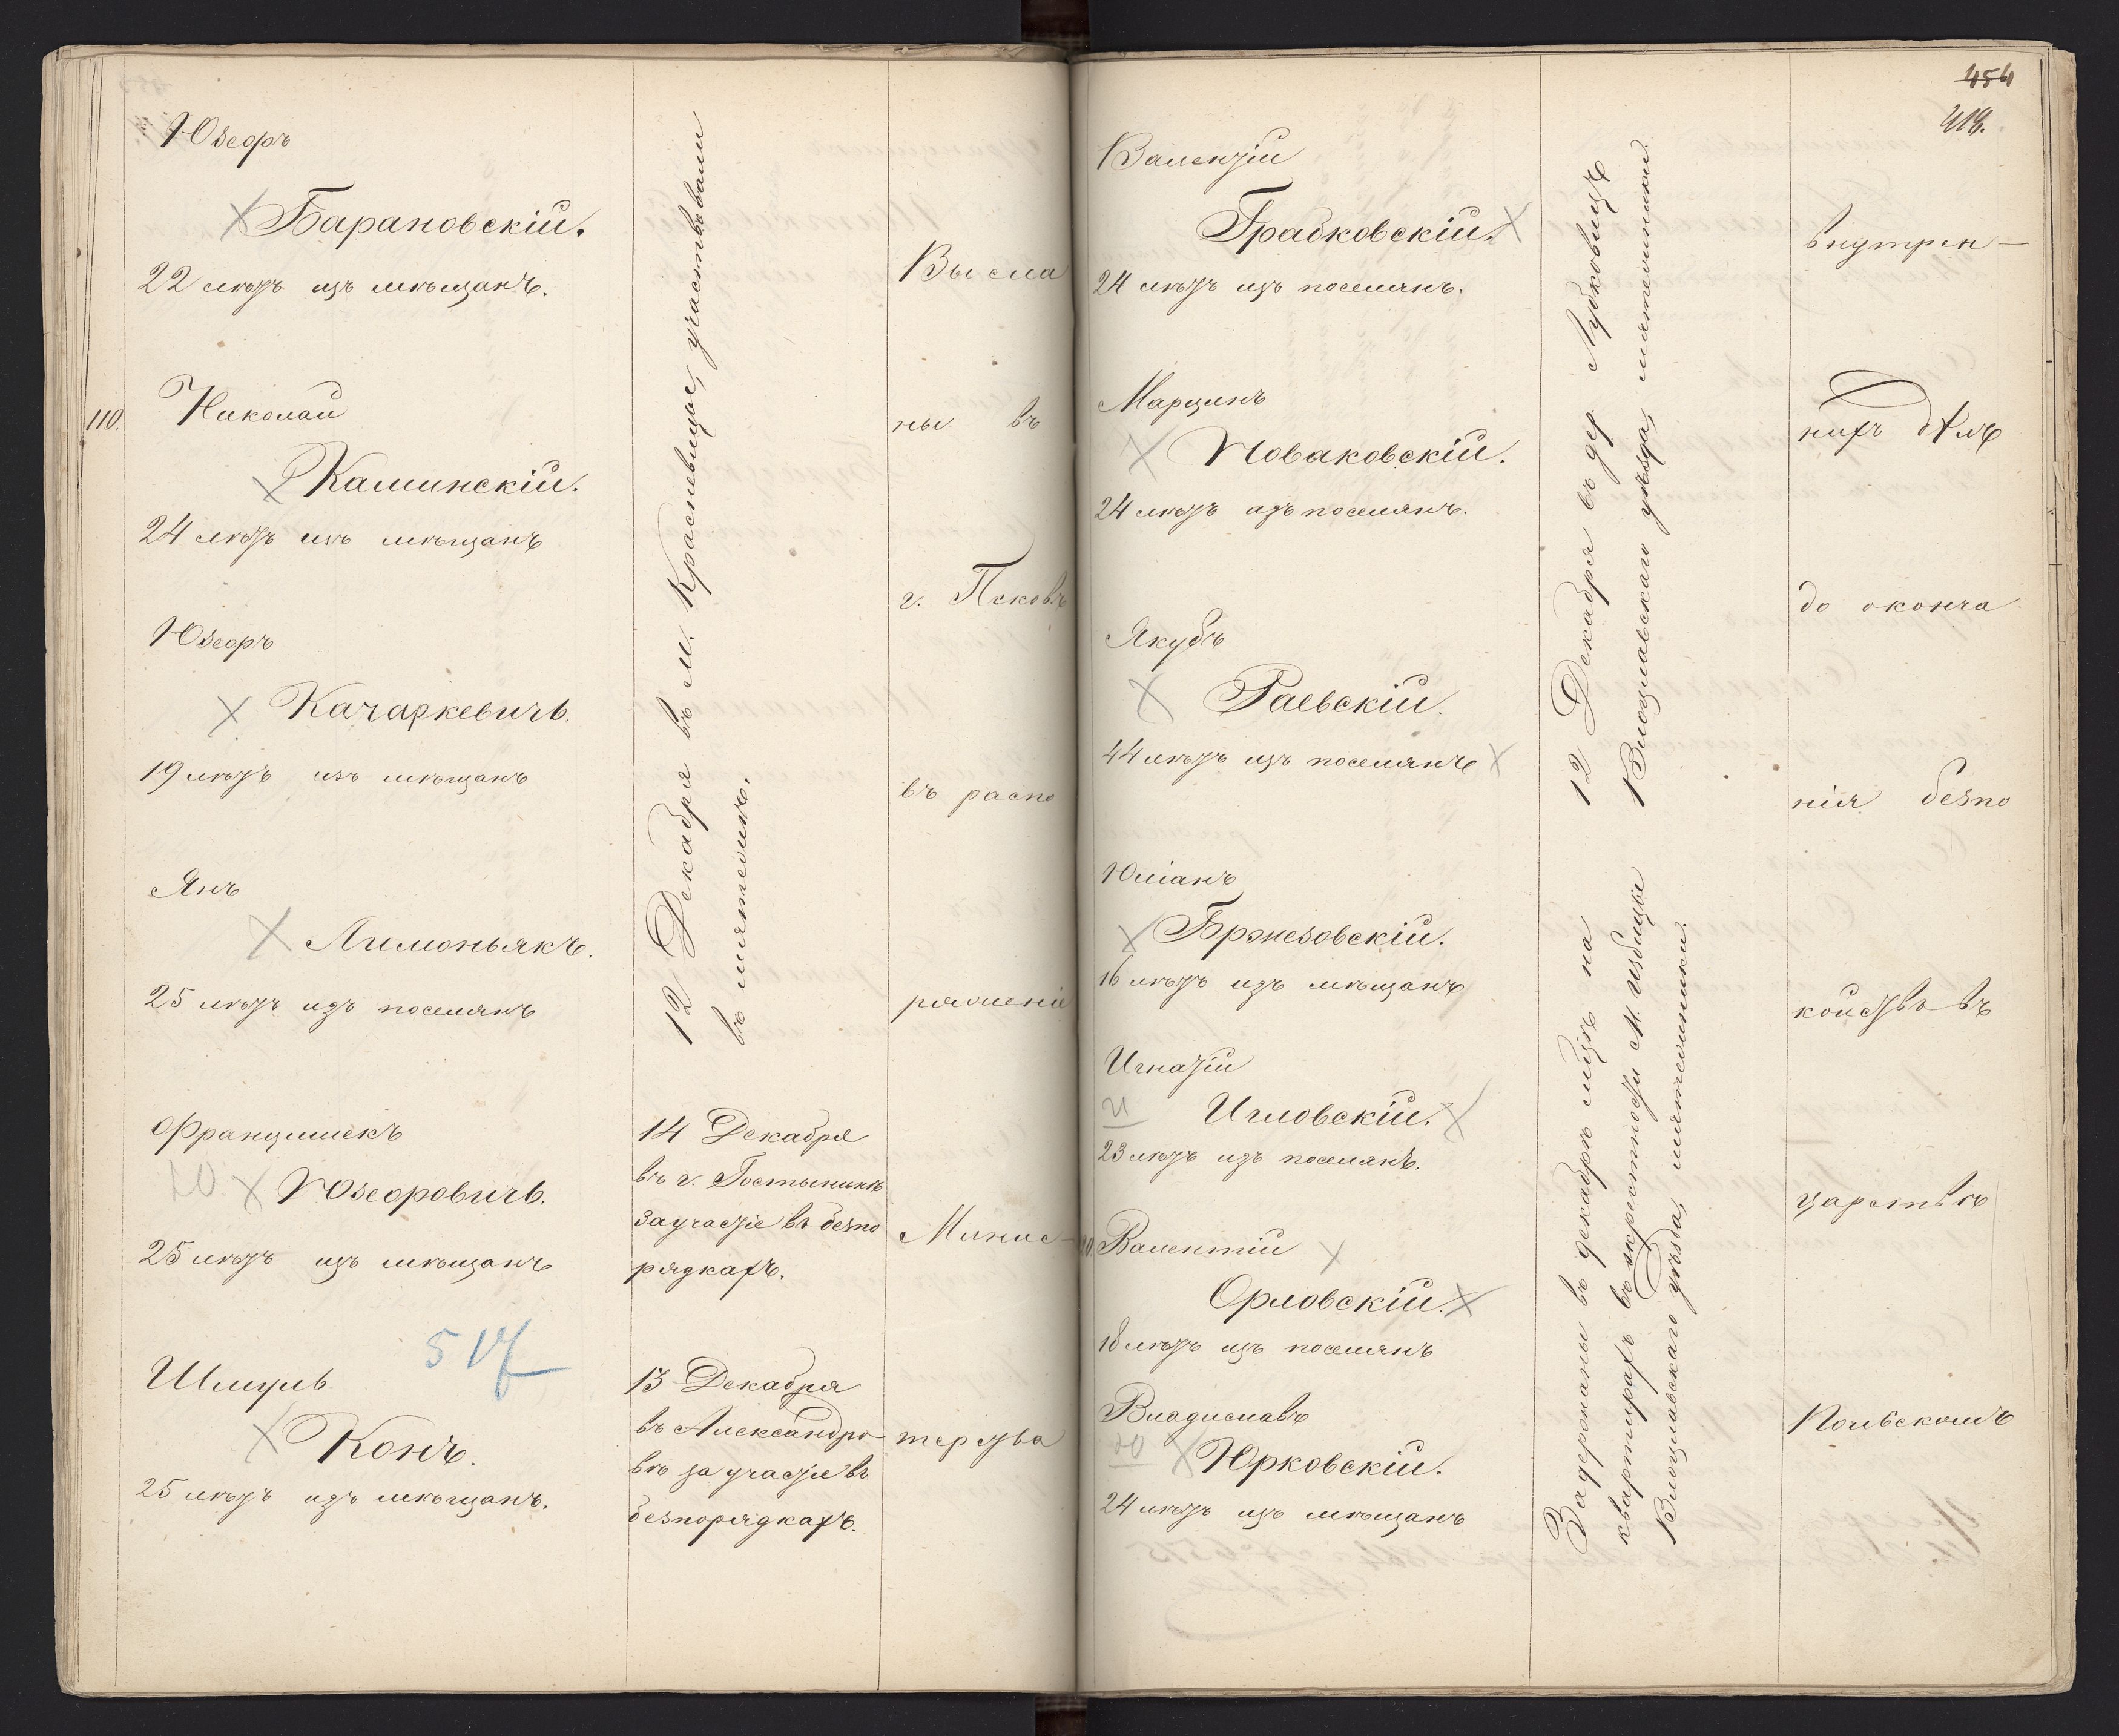 Юзефъ
Барановскій.
22 лѣтъ изъ мѣщанъ.
110. Николай
Каминскій.
24 лѣтъ изъ мѣщанъ
Юзефъ
Качаркевичъ
19 лѣтъ изъ мѣщанъ
Янъ
Лимоньякъ.
25 лѣтъ изъ поселянъ
Францишекъ
Юзефовичъ.
25 лѣтъ изъ мѣщанъ
517
Шмуль
Конъ.
25 лѣтъ изъ мѣщанъ.
12 Декабря въ м. Красневицѣ, участвовали
въ мятежѣ.
14 Декабря
въ г. Гостынинѣ
за участіе въ безпо
рядкахъ.
13 Декабря
въ Александро
вѣ за участіе въ
безпорядкахъ.
Высла
ны въ
г. Псковъ
въ распо
ряженіе
Минис-
терства
454
418.
Валентій
Грабковскій.
24 лѣтъ изъ поселянъ.
Марцинъ
Новаковскій.
24 лѣтъ изъ поселянъ.
Якубъ
Раевскій.
44 лѣтъ изъ поселянъ
Юліанъ
Бржезовскій.
16 лѣтъ изъ мѣщанъ
Игнатій
Игловскій.
23 лѣтъ изъ поселянъ.
Валентій
Орловскій.
18 лѣтъ изъ поселянъ
Владиславъ
20 Юрковскій.
24 лѣтъ изъ мѣщанъ
12 Декабря въ дер. Лубковицѣ
Влоцлавскаго уѣзда, мятежники.
Задержаны въ декабрѣ мцѣ на
квартирахъ въ окрестности м. Избицы
Влоцлавскаго уѣзда, мятежники.
внутрен-
нихъ дѣлъ
до оконча
нія безпо
койствъ въ
царствѣ
Польскомъ